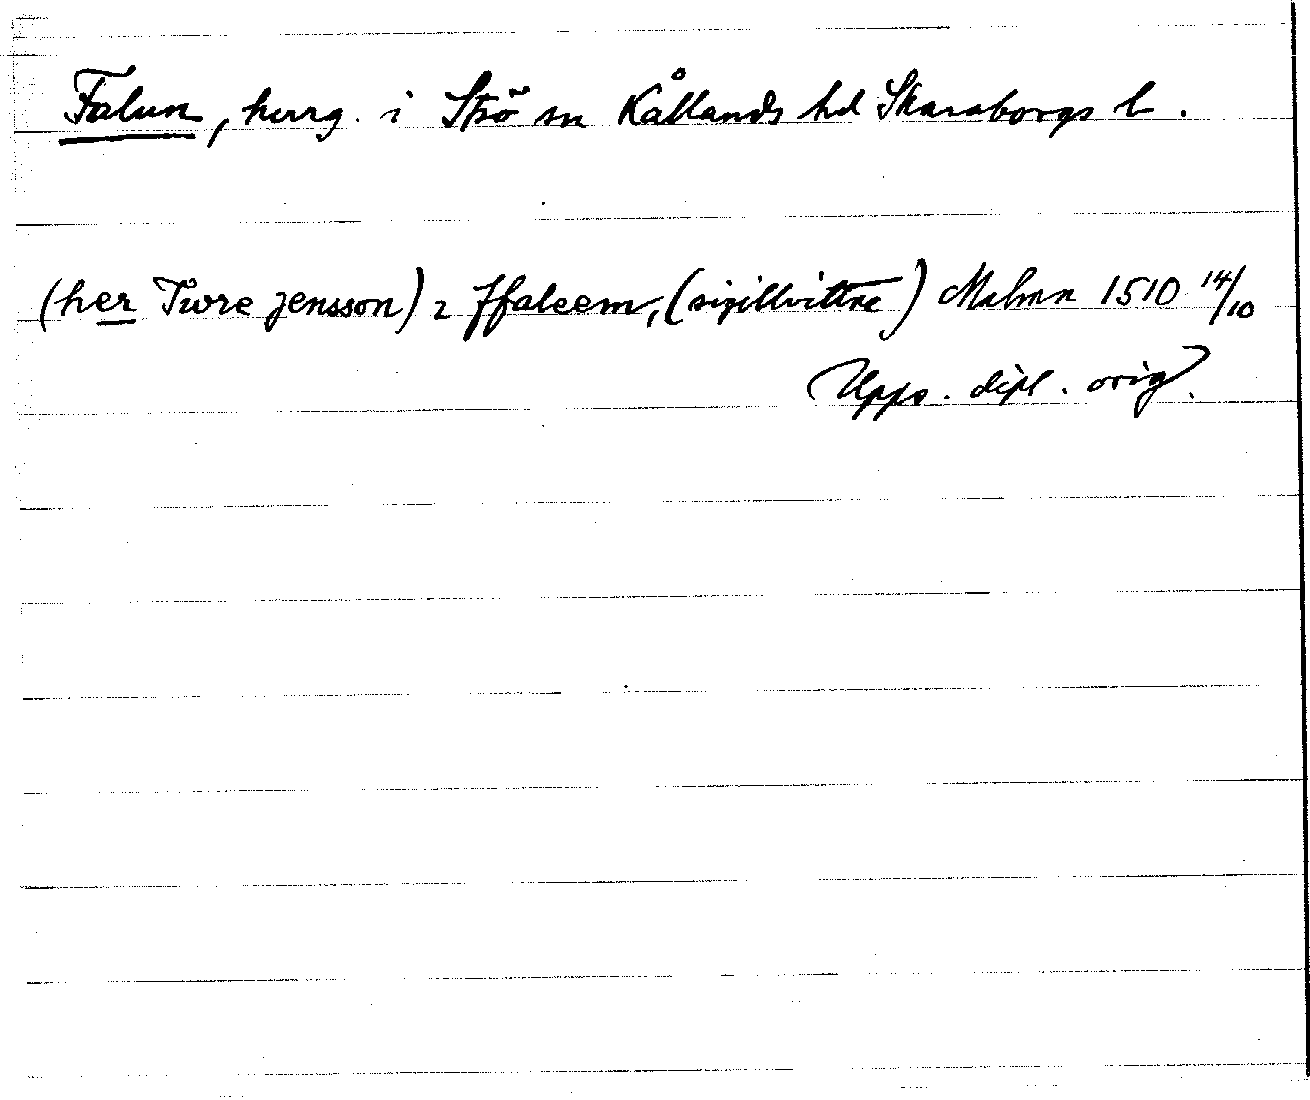 Falun, herrg. i Strö sn Kållands hd Skaraborgs l.
(her Twre jensson) i ffaleem, (sigillvittne) Malmn 1510 14/10
Upps. dipl. orig.